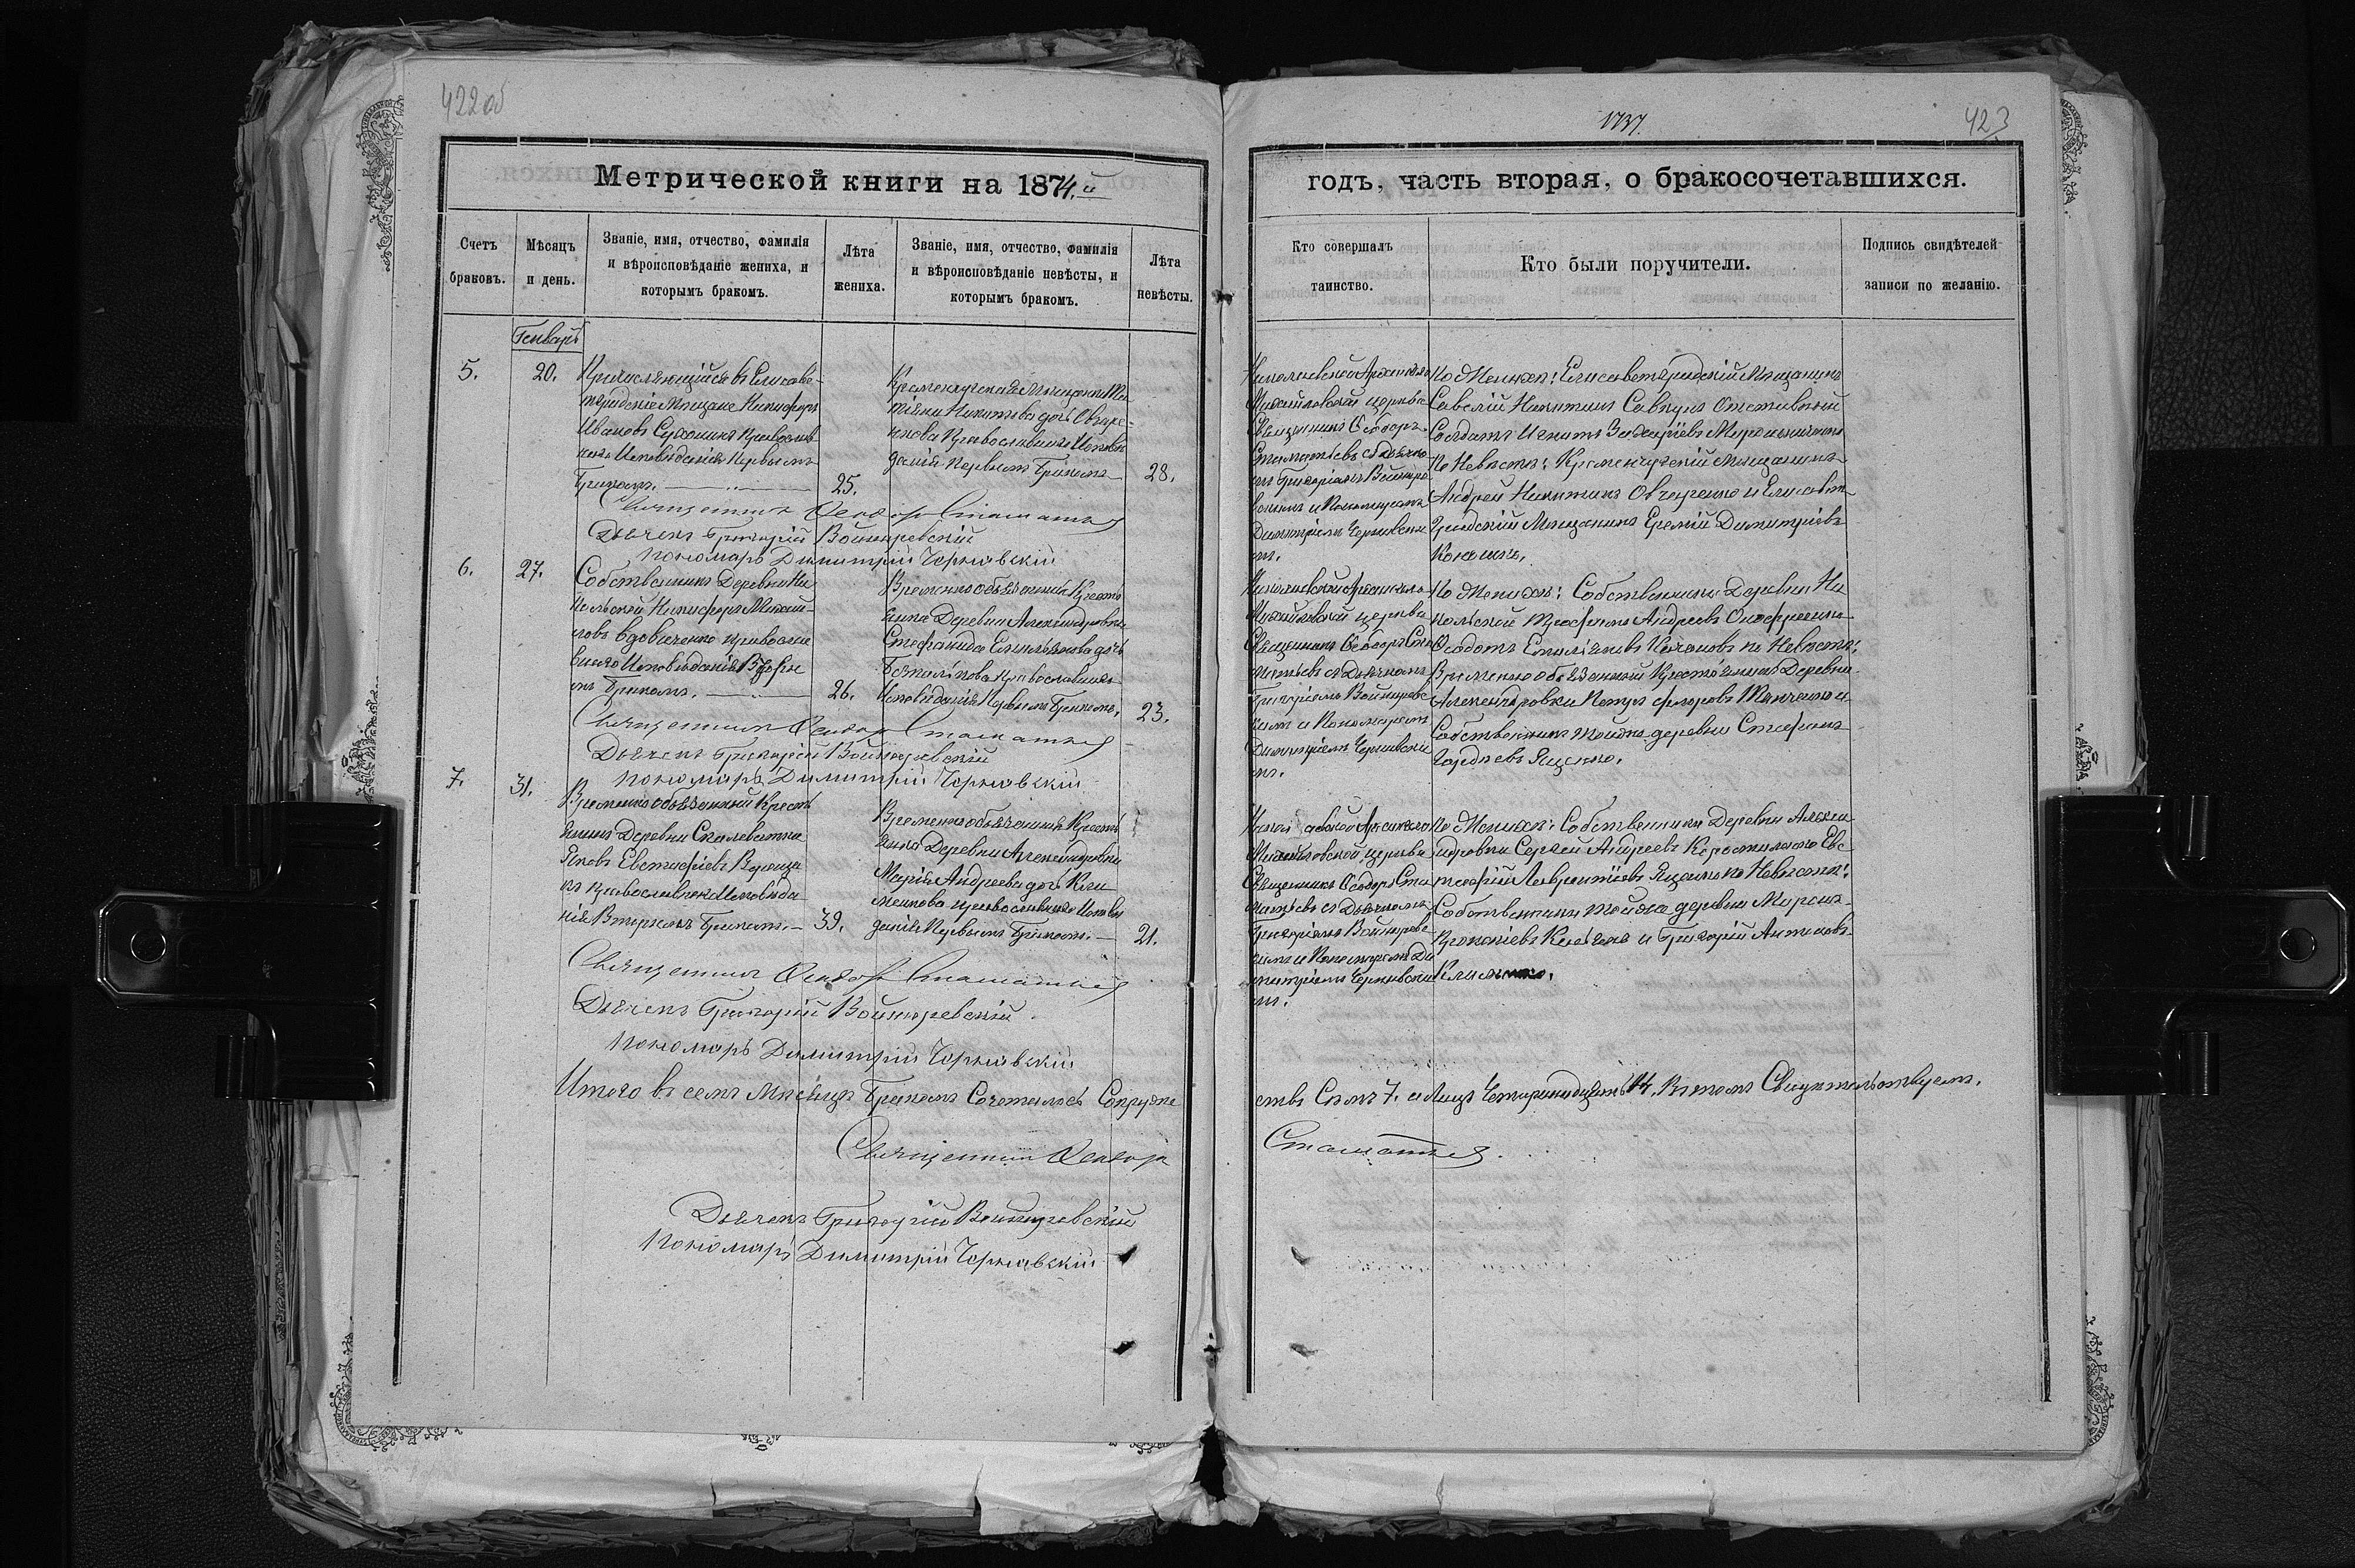 422об
Метрической книги на 1874.й
Счетъ браковъ.
Мѣсяцъ и день.
Званіе, имя, отчество, фамилія
и вѣроисповѣданіе жениха, и
которымъ бракомъ.
Лѣта
жениха.
Званіе, имя, отчество, фамилія
и вѣроисповѣданіе невѣсты, и
которымъ бракомъ.
Лѣта
невѣсты.
Генварь
5.
20.
Причисляющійся въ Елисаве-
тградскіе Мѣщане Никифоръ
Ивановъ Православ
наго Исповѣданія Первымъ
Бракомъ.
25.
Кременчугская Мѣщанка
Никитина дочь Овчаре-
нкова Православнаго Исповѣ
данія Первымъ Бракомъ
28.
Священникъ Ѳеодоръ Стаматьевъ
Дьячекъ Григорій Войнаревскій
Пономарь Димитрій Чернявскій
6.
27.
Собственникъ Деревни Ни
кольской Никифоръ Михай-
ловъ Вдовиченко Православ
внаго Исповѣданія Вторы
мъ Бракомъ.
26.
Временно обязанная Кресть
янка Деревни Александровки
Стефанида Емельянова дочь
Православнаго
Исповѣданія Первымъ Бракомъ.
23.
Священникъ Ѳеодоръ Стаматьевъ
Дьячекъ Григорій Войнаревскій
Пономарь Димитрій Чернявскій
7.
31.
Временно обязанный Кресть
янинъ Деревни Скалеватки
Яковъ Евстафіевъ
Православнаго Исповѣда
нія Вторымъ Бракомъ.
39.
Временно обязанная Кресть
янка Деревни Александровки
Марія Андреева дочь Кли
менкова Православнаго Исповѣ
данія Первымъ Бракомъ.
21.
Священникъ Ѳеодоръ Стаматьевъ
Дьячекъ Григорій Войнаревскій.
Пономарь Димитрій Чернявскій
Итого въ семъ Мѣсяцѣ Бракомъ Сочеталось Супруже
Священникъ Ѳеодоръ
Дьячекъ Григорій Войнаревскій
Пономарь Димитрій Чернявскій
1737.
423
годъ, часть вторая, о бракосочетавшихся.
Кто совершалъ
таинство.
Кто были поручители.
Подпись свидѣтелей
записи по желанію.
Николаевской Архангело
Михайловской церкви
Священникъ Ѳеодоръ
Стаматьевъ съ Дьячко-
мъ Григоріемъ Войнарев
скимъ и Пономаремъ
Димитріемъ Чернявски
мъ.
По Женихѣ: Елисаветградскій Мѣщанинъ
Савелій Никитинъ Отставной
Солдатъ Игнатъ Захаріевъ
По Невѣстѣ: Кременчугскій Мѣщанинъ
Андрей Никитинъ Овчаренко и Елисавет-
градскій Мѣщанинъ Еремій Димитріевъ
Николаевской Архангело
Михайловской церкви
Священникъ Ѳеодоръ Ста
матьевъ съ Дьячкомъ
Григоріемъ Войнаревс
кимъ и Пономаремъ
Димитріемъ Чернявски
мъ.
По Женихѣ: Собственники Деревни Ни
кольской Трофимъ Андреевъ
Ѳеодотъ Емельяновъ по Невѣстѣ:
Временно обязанный Крестьянинъ Деревни
Александровки
Собственникъ той же деревни Стефанъ
Гордѣевъ Яценко.
Николаевской Архангело
Михайловской церкви
Священникъ Ѳеодоръ Ста
матьевъ съ Дьячкомъ
Григоріемъ Войнаревс
кимъ и Пономаремъ Ди
митріемъ Чернявски
мъ.
По Женихѣ: Собственники Деревни Алекса
ндровки Сергей Андреевъ Евс
тафій Лаврентіевъ по Невѣстѣ:
Собственники той же деревни
Прокопіевъ и Григорій Антоновъ
Клименко.
ствъ Семь 7. а Лицъ Четырнадцать 14. Въ томъ Свидѣтельствуемъ.
Стаматьевъ.